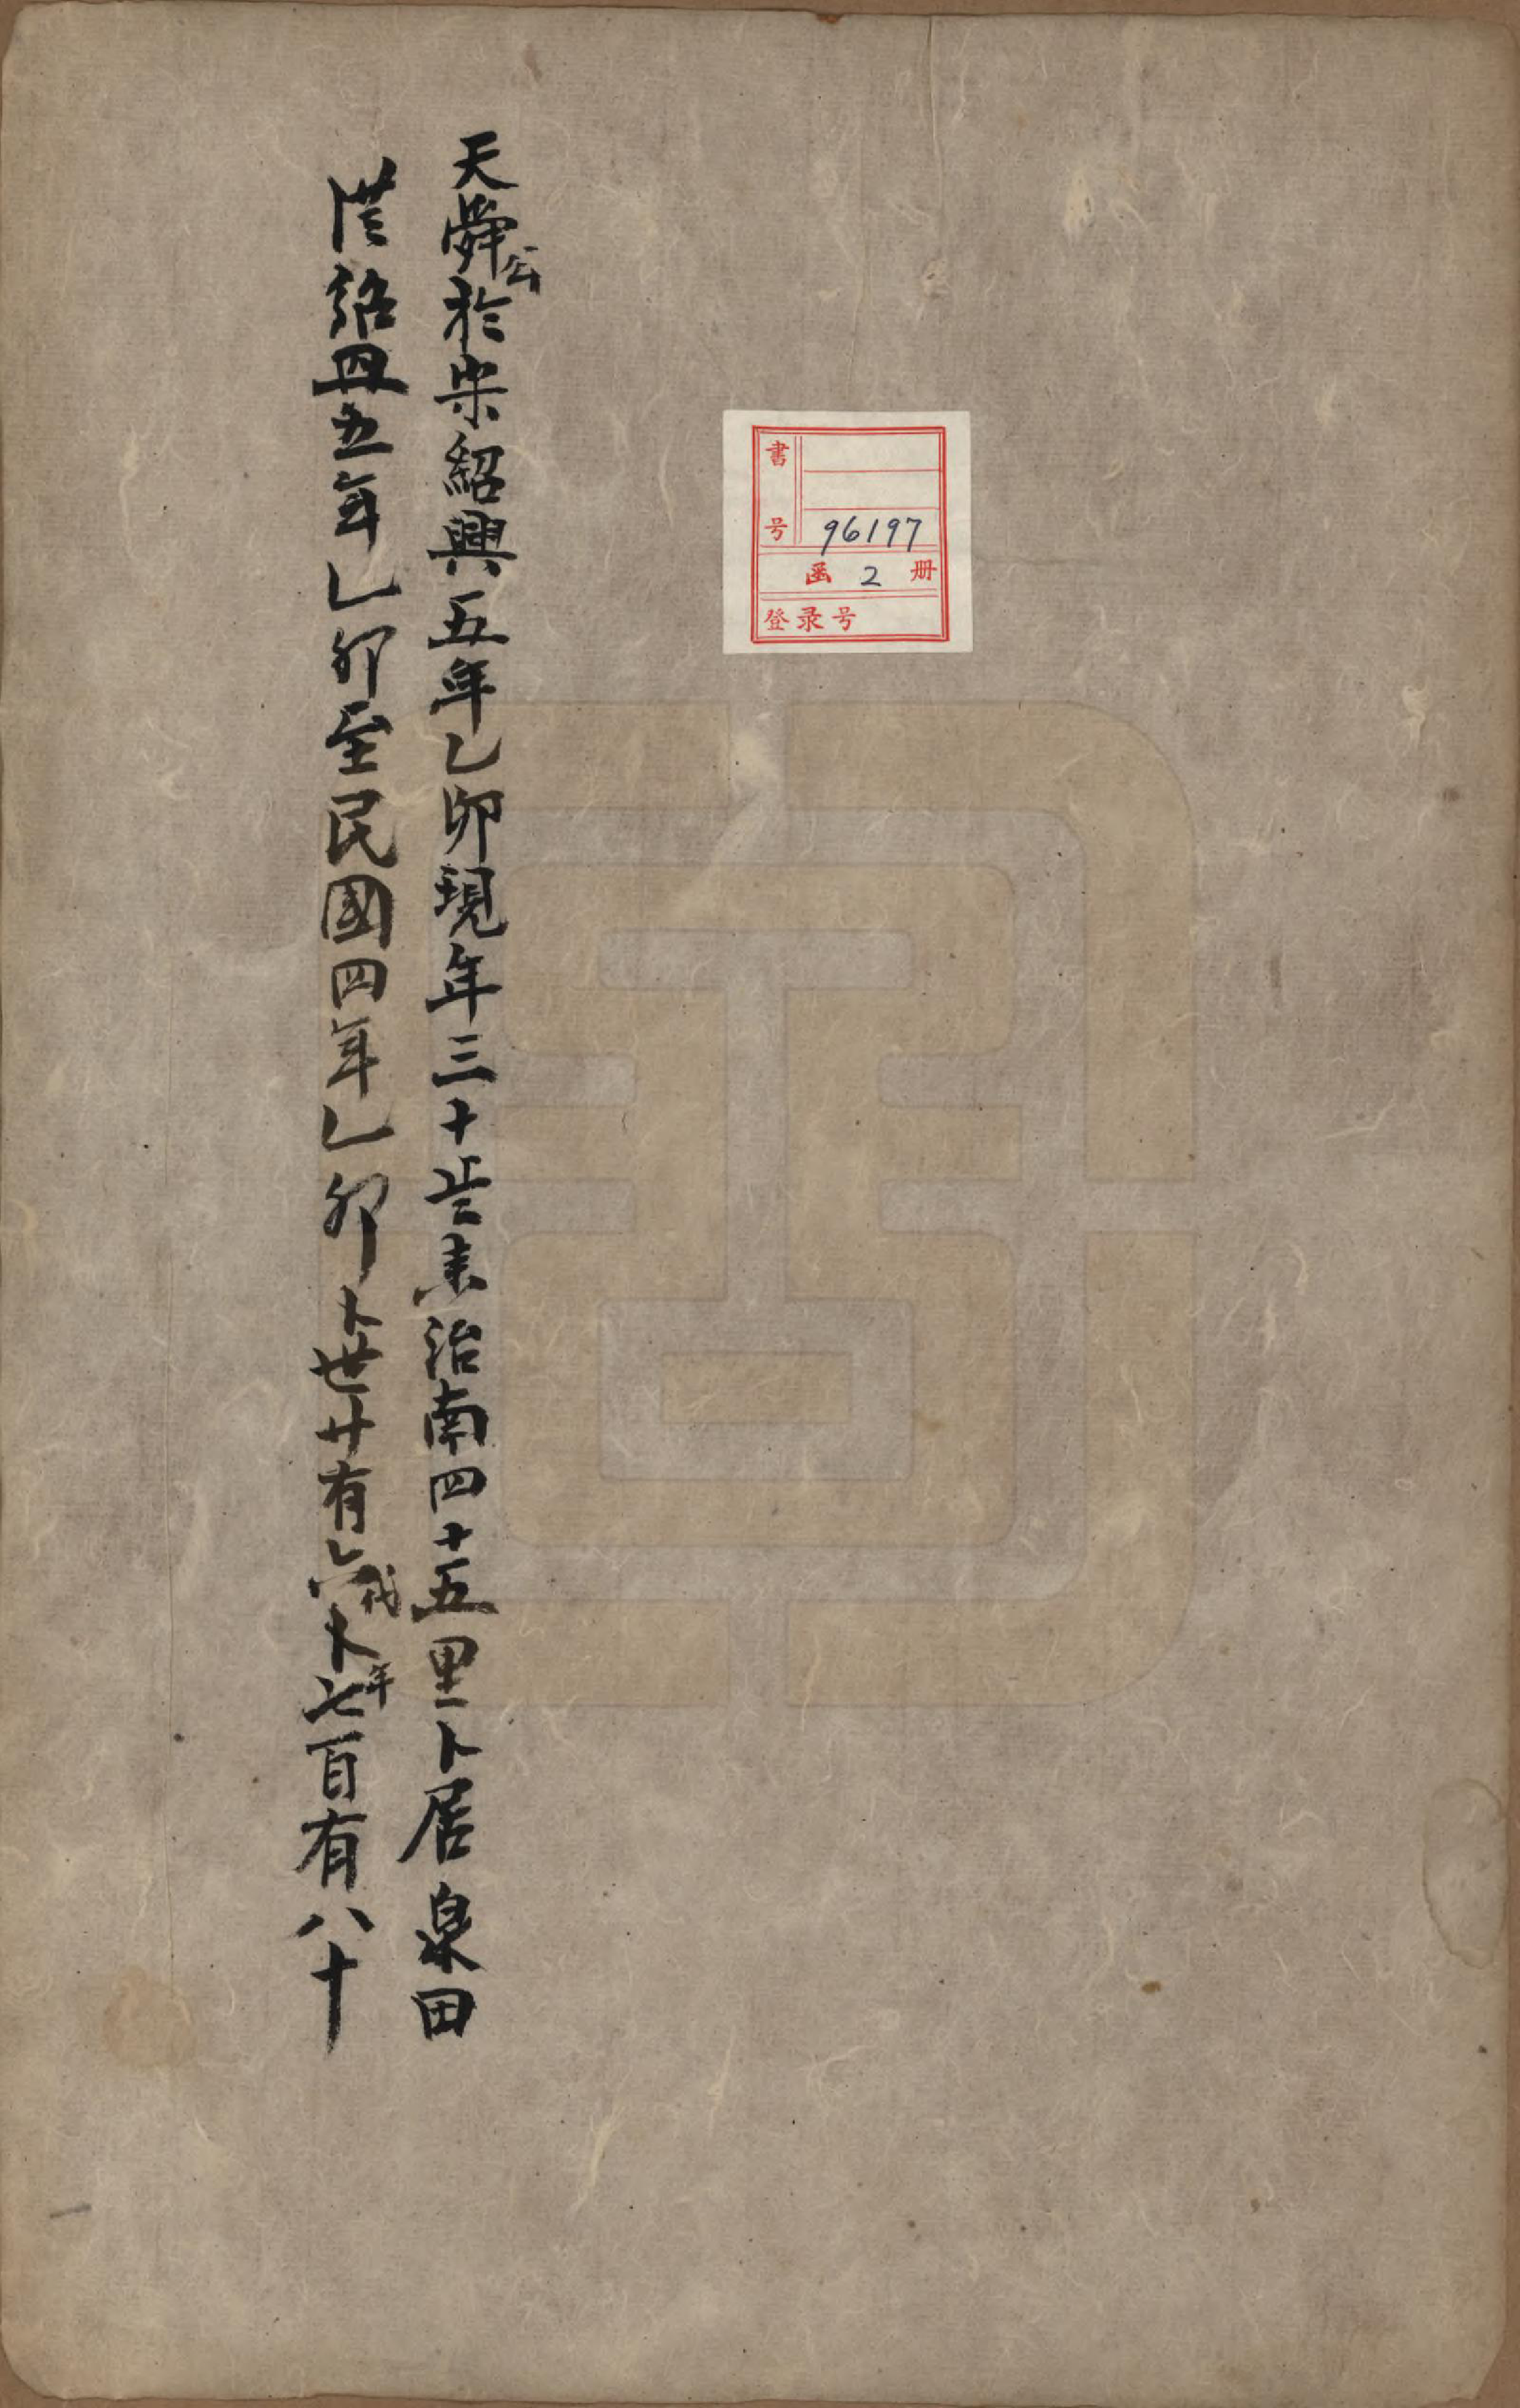 天舜公於宋紹興五年乙卯現年三十岁來治南四十五里卜居泉田
從紹興五年乙卯至民國四年乙卯卜世廿有六代卜年七百有八十
書号 96197
函 2 册
登录号